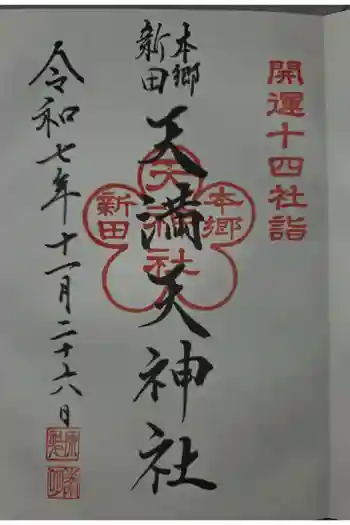 開運十四社詣
本郷
新田
天満天神社
本郷
天神社
新田
令和七年十一月二十六日